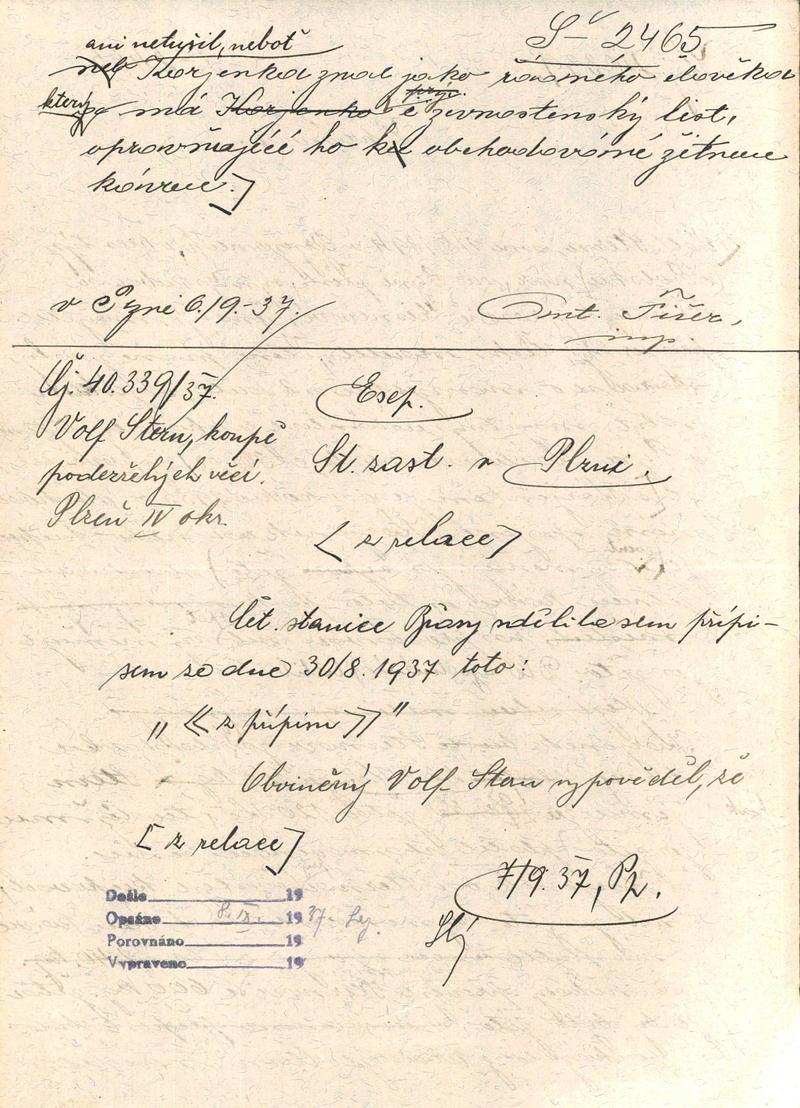 S 2465
ani netušil, neboť
neb Korjenka znal jako řádného člověka
který má Korjenko prý i živnostenský list,
opravňující ho ku obchodování žitnou
v Plzni 6/9.-37.
Čj. 40.339/37.
Esep.
Volf Stern, koupě
podezřelých věcí.
Plzeň IV okr.
St. zast. v Plzni.
[z relace]
Čet. stanice Břasy sdělila sem přípi-
sem ze dne 30/8. 1937 toto:
„ << z přípisu >> “
Obviněný Volf Stern vypověděl, že
[z relace]
7/9. 37, Pz.
Došlo 19
Opsáno 8. IX. 1937
Porovnáno 19
Vypraveno 19